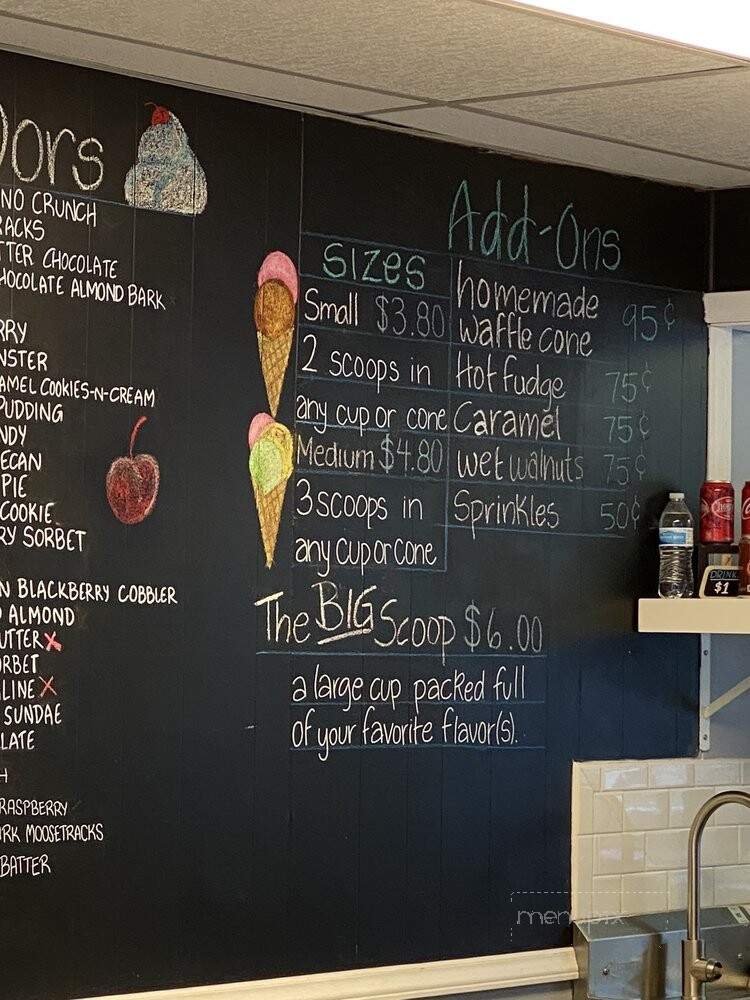 ors
NO CRUNCH
RACKS
TTER CHOCOLATE
HOCOLATE ALMOND BARK
RRY
NSTER
AMEL COOKIES-N-CREAM
PUDDING
NDY
ECAN
PIE
COOKIE
RY SORBET
N BLACKBERRY COBBLER
D ALMOND
UTTER X
ORBET
LINE X
SUNDAE
LATE
H
RASPBERRY
ARK MOOSETRACKS
BATTER
SIZES
Small $3.80
2 scoops in
any cup or cone
Medium $4.80
3 scoops in
any cup or cone
Add-Ons
homemade
waffle cone 95¢
Hot fudge 75¢
Caramel 75¢
wet walnuts 75¢
Sprinkles 50¢
The BIG Scoop $6.00
a large cup packed full
of your favorite flavor(s).
DRINK
$1
menupix